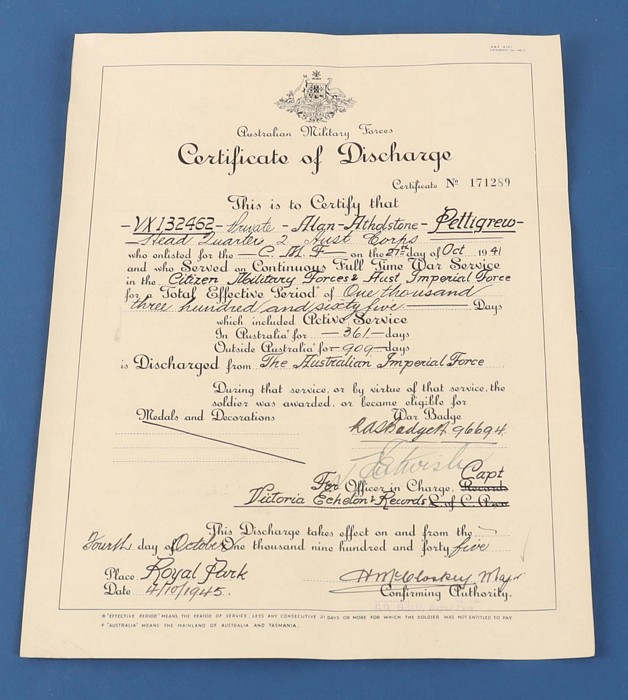 Australian Military Forces
Certificate of Discharge
Certificate No 171289
This is to Certify that
-VX132462- Private - Alan - Athelstone - Pettigrew-
Head Quarters 2 Aust Corps
who enlisted for the - C. M. F - on the 27th day of Oct 1941
and who Served on Continuous Full Time War Service
in the Citizen Military Forces & Aust Imperial Force
for a Total Effective Period* of One thousand
three hundred and sixty five Days
which included Active Service
In Australia† for -361- days
Outside Australia† for -909- days
is Discharged from The Australian Imperial Force
During that service, or by virtue of that service, the
soldier was awarded, or became eligible for
Medals and Decorations War Badge
RAS Badge A 96694
Capt
For Officer in Charge, Records
Victoria Echelon & Records L. of C. Area
This Discharge takes effect on and from the
Fourth day of October One thousand nine hundred and forty five
Place Royal Park H McCloskey Major
Date 4/10/1945. Confirming Authority.
* "EFFECTIVE PERIOD" MEANS THE PERIOD OF SERVICE, LESS ANY CONSECUTIVE 21 DAYS OR MORE FOR WHICH THE SOLDIER WAS NOT ENTITLED TO PAY.
† "AUSTRALIA" MEANS THE MAINLAND OF AUSTRALIA AND TASMANIA.